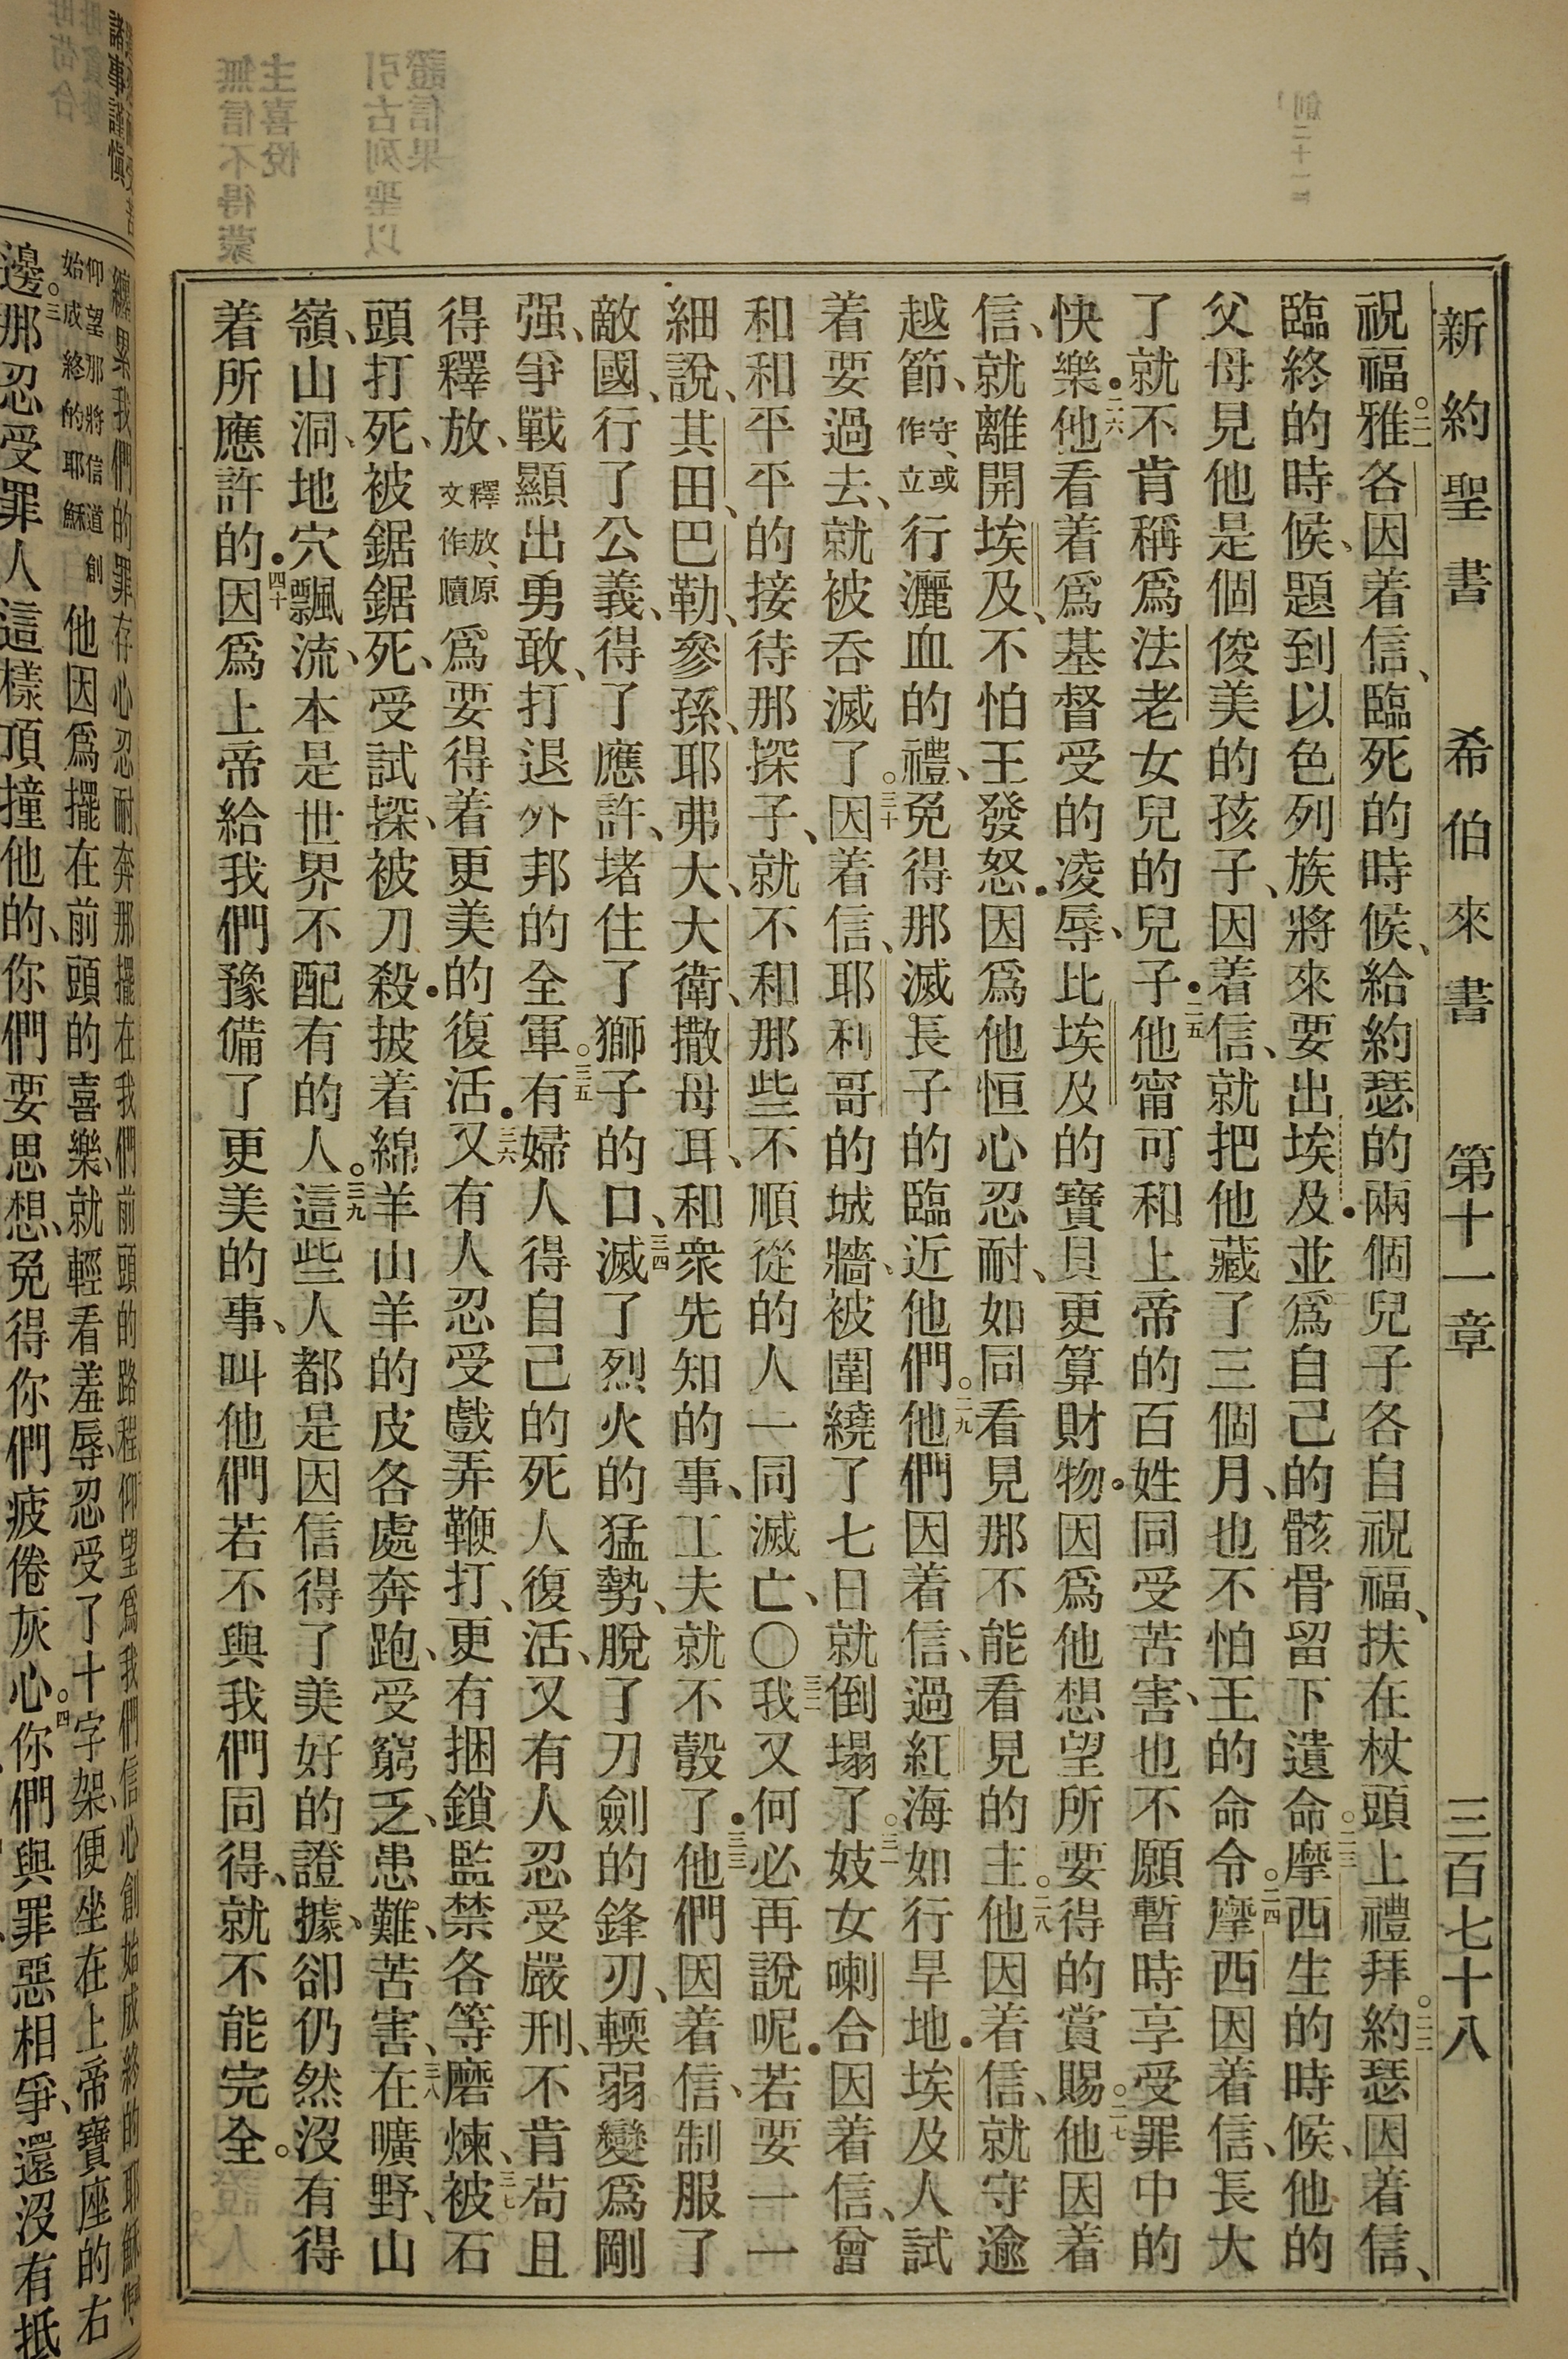 新約聖書 希伯來書 第十一章 三百七十八
祝福。二一雅各因着信、臨死的時候、給約瑟的兩個兒子各自祝福、扶在杖頭上禮拜。二二約瑟因着信、
臨終的時候、題到以色列族將來要出埃及並爲自己的骸骨留下遺命。二三摩西生的時候、他的
父母見他是個俊美的孩子、因着信、就把他藏了三個月、也不怕王的命令。二四摩西因着信、長大
了就不肯稱爲法老女兒的兒子。二五他甯可和上帝的百姓同受苦害、也不願暫時享受罪中的
快樂。二六他看着爲基督受的凌辱、比埃及的寶貝更算財物。因爲他想望所要得的賞賜。二七他因着
信、就離開埃及、不怕王發怒。因爲他恒心忍耐、如同看見那不能看見的主。二八他因着信、就守逾
越節、守、或作立行灑血的禮、免得那滅長子的臨近他們。二九他們因着信、過紅海如行旱地。埃及人試
着要過去、就被吞滅了。三十因着信、耶利哥的城牆、被圍繞了七日就倒塌了。三一妓女喇合因着信、曾
和和平平的接待那探子、就不和那些不順從的人一同滅亡、〇三二我又何必再說呢。若要一一
細說、其田、巴勒、參孫、耶弗大、大衛、撒母耳、和衆先知的事、工夫就不彀了。三三他們因着信、制服了
敵國、行了公義、得了應許、堵住了獅子的口、三四滅了烈火的猛勢、脫了刀劍的鋒刃、輭弱變爲剛
强、爭戰顯出勇敢、打退外邦的全軍。三五有婦人得自己的死人復活、又有人忍受嚴刑、不肯苟且
得釋放、釋放、原文作贖爲要得着更美的復活。三六又有人忍受戲弄鞭打、更有捆鎖監禁各等磨煉、三七被石
頭打死、被鋸鋸死、受試探、被刀殺。披着綿羊山羊的皮各處奔跑、受窮乏、患難、苦害、三八在曠野、山
嶺、山洞、地穴飄流、本是世界不配有的人。三九這些人都是因信得了美好的證據、卻仍然沒有得
着所應許的。四十因爲上帝給我們豫備了更美的事、叫他們若不與我們同得、就不能完全。
諸事謹愼
纏累我們的罪存心忍耐奔那擺在我們前頭的路程仰望爲我們信心創始成終的耶穌
仰望那將信道創始成終的耶穌他因爲擺在前頭的喜樂、就輕看羞辱、忍受了十字架、便坐在上帝寶座的右
邊。三那忍受罪人這樣頂撞他的、你們要思想、免得你們疲倦灰心。四你們與罪惡相爭、還沒有抵